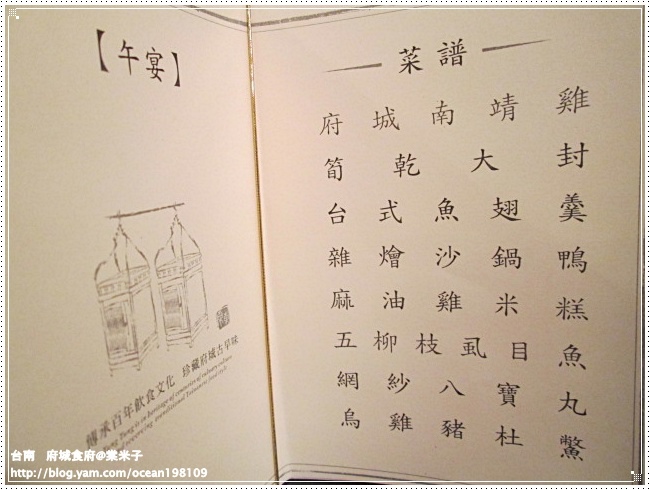 【午宴】
傳承百年飲食文化 珍藏府城古早味
is in heritage of centuries of culinary culture
traditional Tainanese food style
菜譜
府城南靖雞
筍乾大封
台式魚翅羹
雜燴沙鍋鴨
麻油雞米糕
五柳枝虱目魚
網紗八寶丸
烏雞豬杜鱉
台南 府城食府@米子
http://blog.yam.com/ocean198109